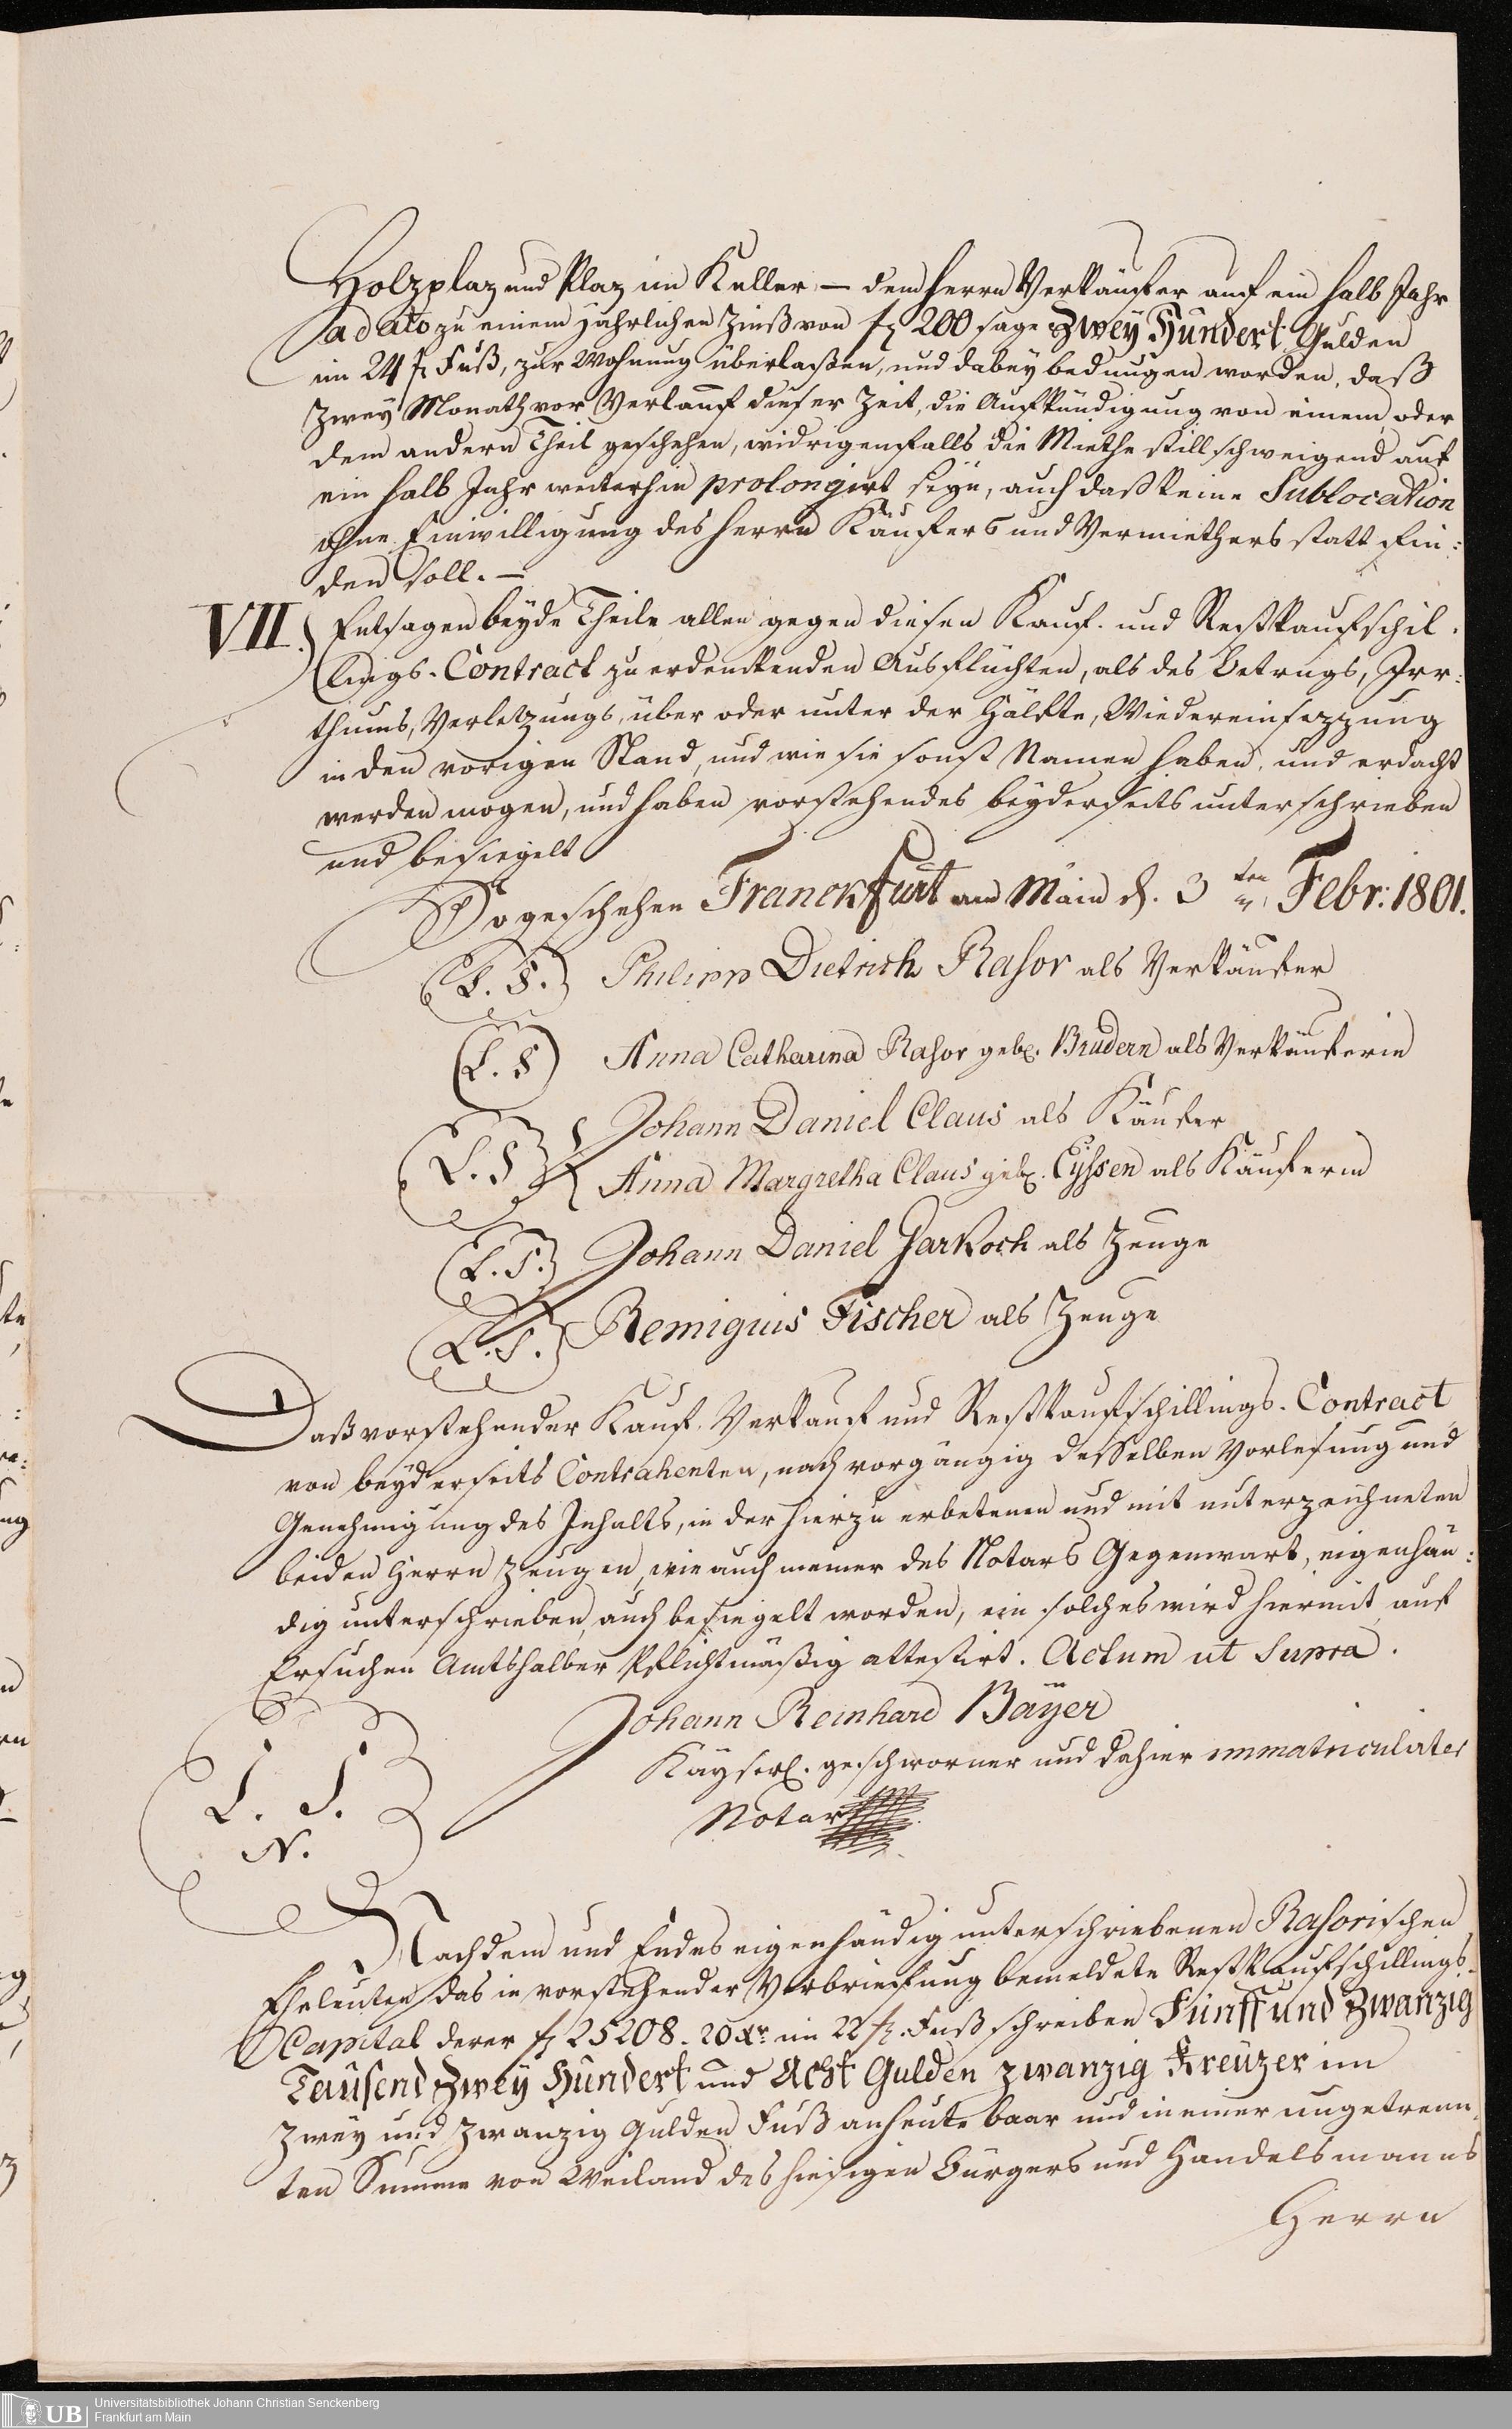 Holzplaz und Plaz im Keller, — dem Herrn Verkäufer auf ein halb Jahr
a dato zu einem jährlichen Zinß von fl 200 sage Zwey Hundert Gulden
im 24 fl Fuß, zur Wohnung überlaßen, und dabey bedungen worden, daß
zwey Monath vor Verlauf dieser Zeit, die Aufkündigung von einem, oder
dem andern Theil geschehen, widrigenfalls die Miethe stillschweigend auf
ein halb Jahr weiterhin prolongirt seyn, auch daß keine Sublocation
ohne Einwilligung des Herrn Käufers und Vermiethers statt fin:
den soll. —
VII.) Entsagen beyde Theile allen gegen diesen Kauf- und Restkaufschil-
lings-Contract zu erdenckenden Ausflüchten, als des Betrugs, Irr:
thums, Verletzungs, über oder unter der Hälfte, Wiedereinsezzung
in den vorigen Stand, und wie sie sonst Namen haben, und erdacht
werden mögen, und haben vorstehendes beyderseits unterschrieben
und besiegelt
So geschehen Franckfurt am Main d. 3ten Febr: 1801.
(L. S.) Philipp Dietrich Rasor als Verkäufer
(L. S) Anna Catharina Rasor geb. Brudern als Verkäuferin
(L. S) Johann Daniel Claus als Käufer
Anna Margretha Claus geb. Eyssen als Käuferin
(L. S.) Johann Daniel Garkoch als Zeuge
(L. S.) Remigius Fischer als Zeuge
Daß vorstehender Kauf- Verkauf und Restkaufschillings-Contract
von beyderseits Contrahenten, nach vorgängig desselben Vorlesung und
Genehmigung des Inhalts, in der hierzu erbetenen und mit unterzeichneten
beiden Herrn Zeugen, wie auch meiner des Notars Gegenwart, eigenhän:
dig unterschrieben, auch besiegelt worden, ein solches wird hiermit auf
Ersuchen Amtshalber Pflichtmäßig attestirt. Actum ut Supra.
Johann Reinhard Bäyer
Kayserl. geschworner und dahier immatriculirter
L. S.
N.
Notar
Nachdem und Endes eigenhändig unterschriebenen Rasorischen
Eheleuten das in vorstehender Verbriefung bemeldete Restkaufschillings-
Capital derer fl 25208. 20 Xr. im 22 fl. Fuß schreiben Fünff und Zwanzig
Tausend Zwey Hundert und Acht Gulden zwanzig Kreuzer im
Zwey und Zwanzig Gulden Fuß anheute baar und in einer ungetrenn-
ten Summe von Weiland des hiesigen Bürgers und Handelsmanns
Herrn
UB Universitätsbibliothek Johann Christian Senckenberg
Frankfurt am Main